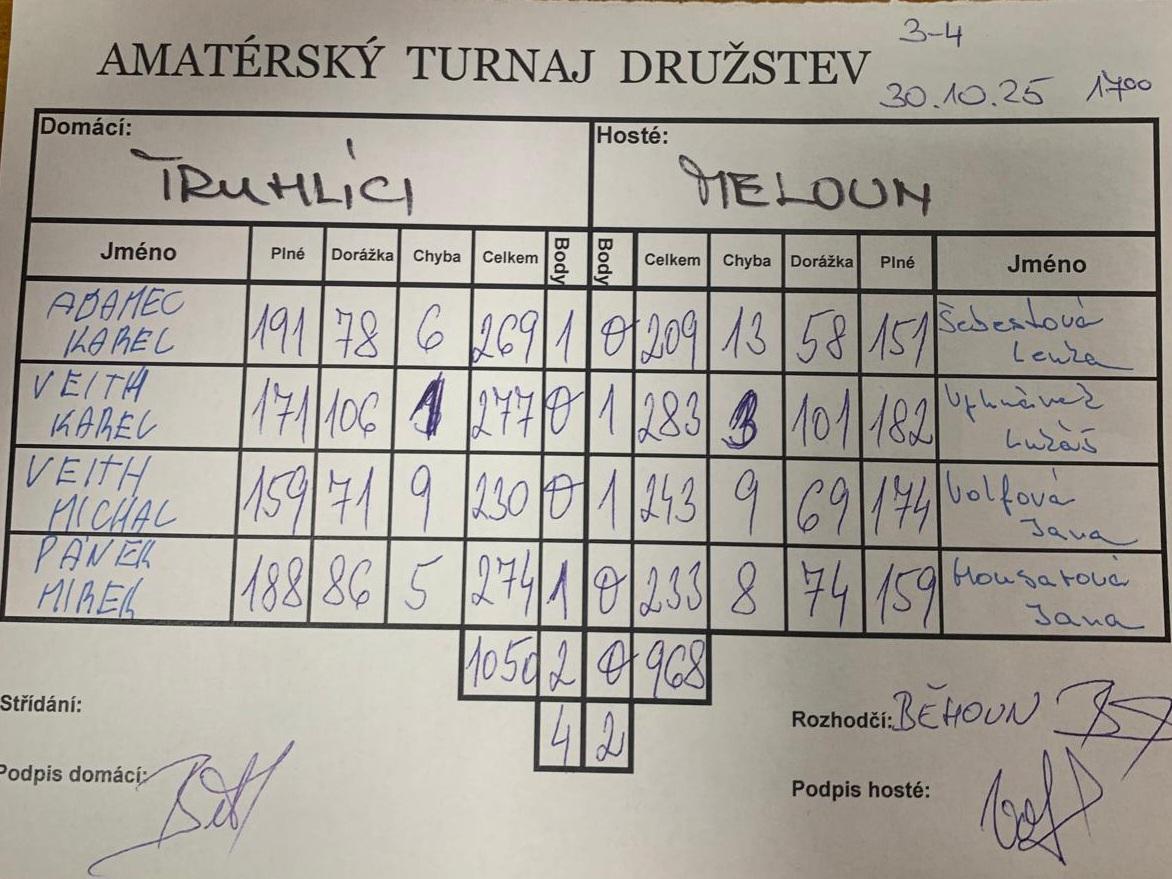 3-4
AMATÉRSKÝ TURNAJ DRUŽSTEV
30.10.25 1700
Domácí: Hosté:
TRUHLÍCI MELOUN
Jméno Plné Dorážka Chyba Celkem Body Body Celkem Chyba Dorážka Plné Jméno
ADAMEC Šebestová
KAREL 191 78 6 269 1 0 209 13 58 151 Lenka
VEITH
KAREL 171 106 1 277 0 1 283 3 101 182 Lukáš
VEITH Volfová
MICHAL 159 71 9 230 0 1 243 9 69 174 Jana
PÁNEK
MIREK 188 86 5 274 1 0 233 8 74 159 Jana
1050 2 0 968
4 2
Střídání:
Rozhodčí: BĚHOUN
Podpis domácí:
Podpis hosté: